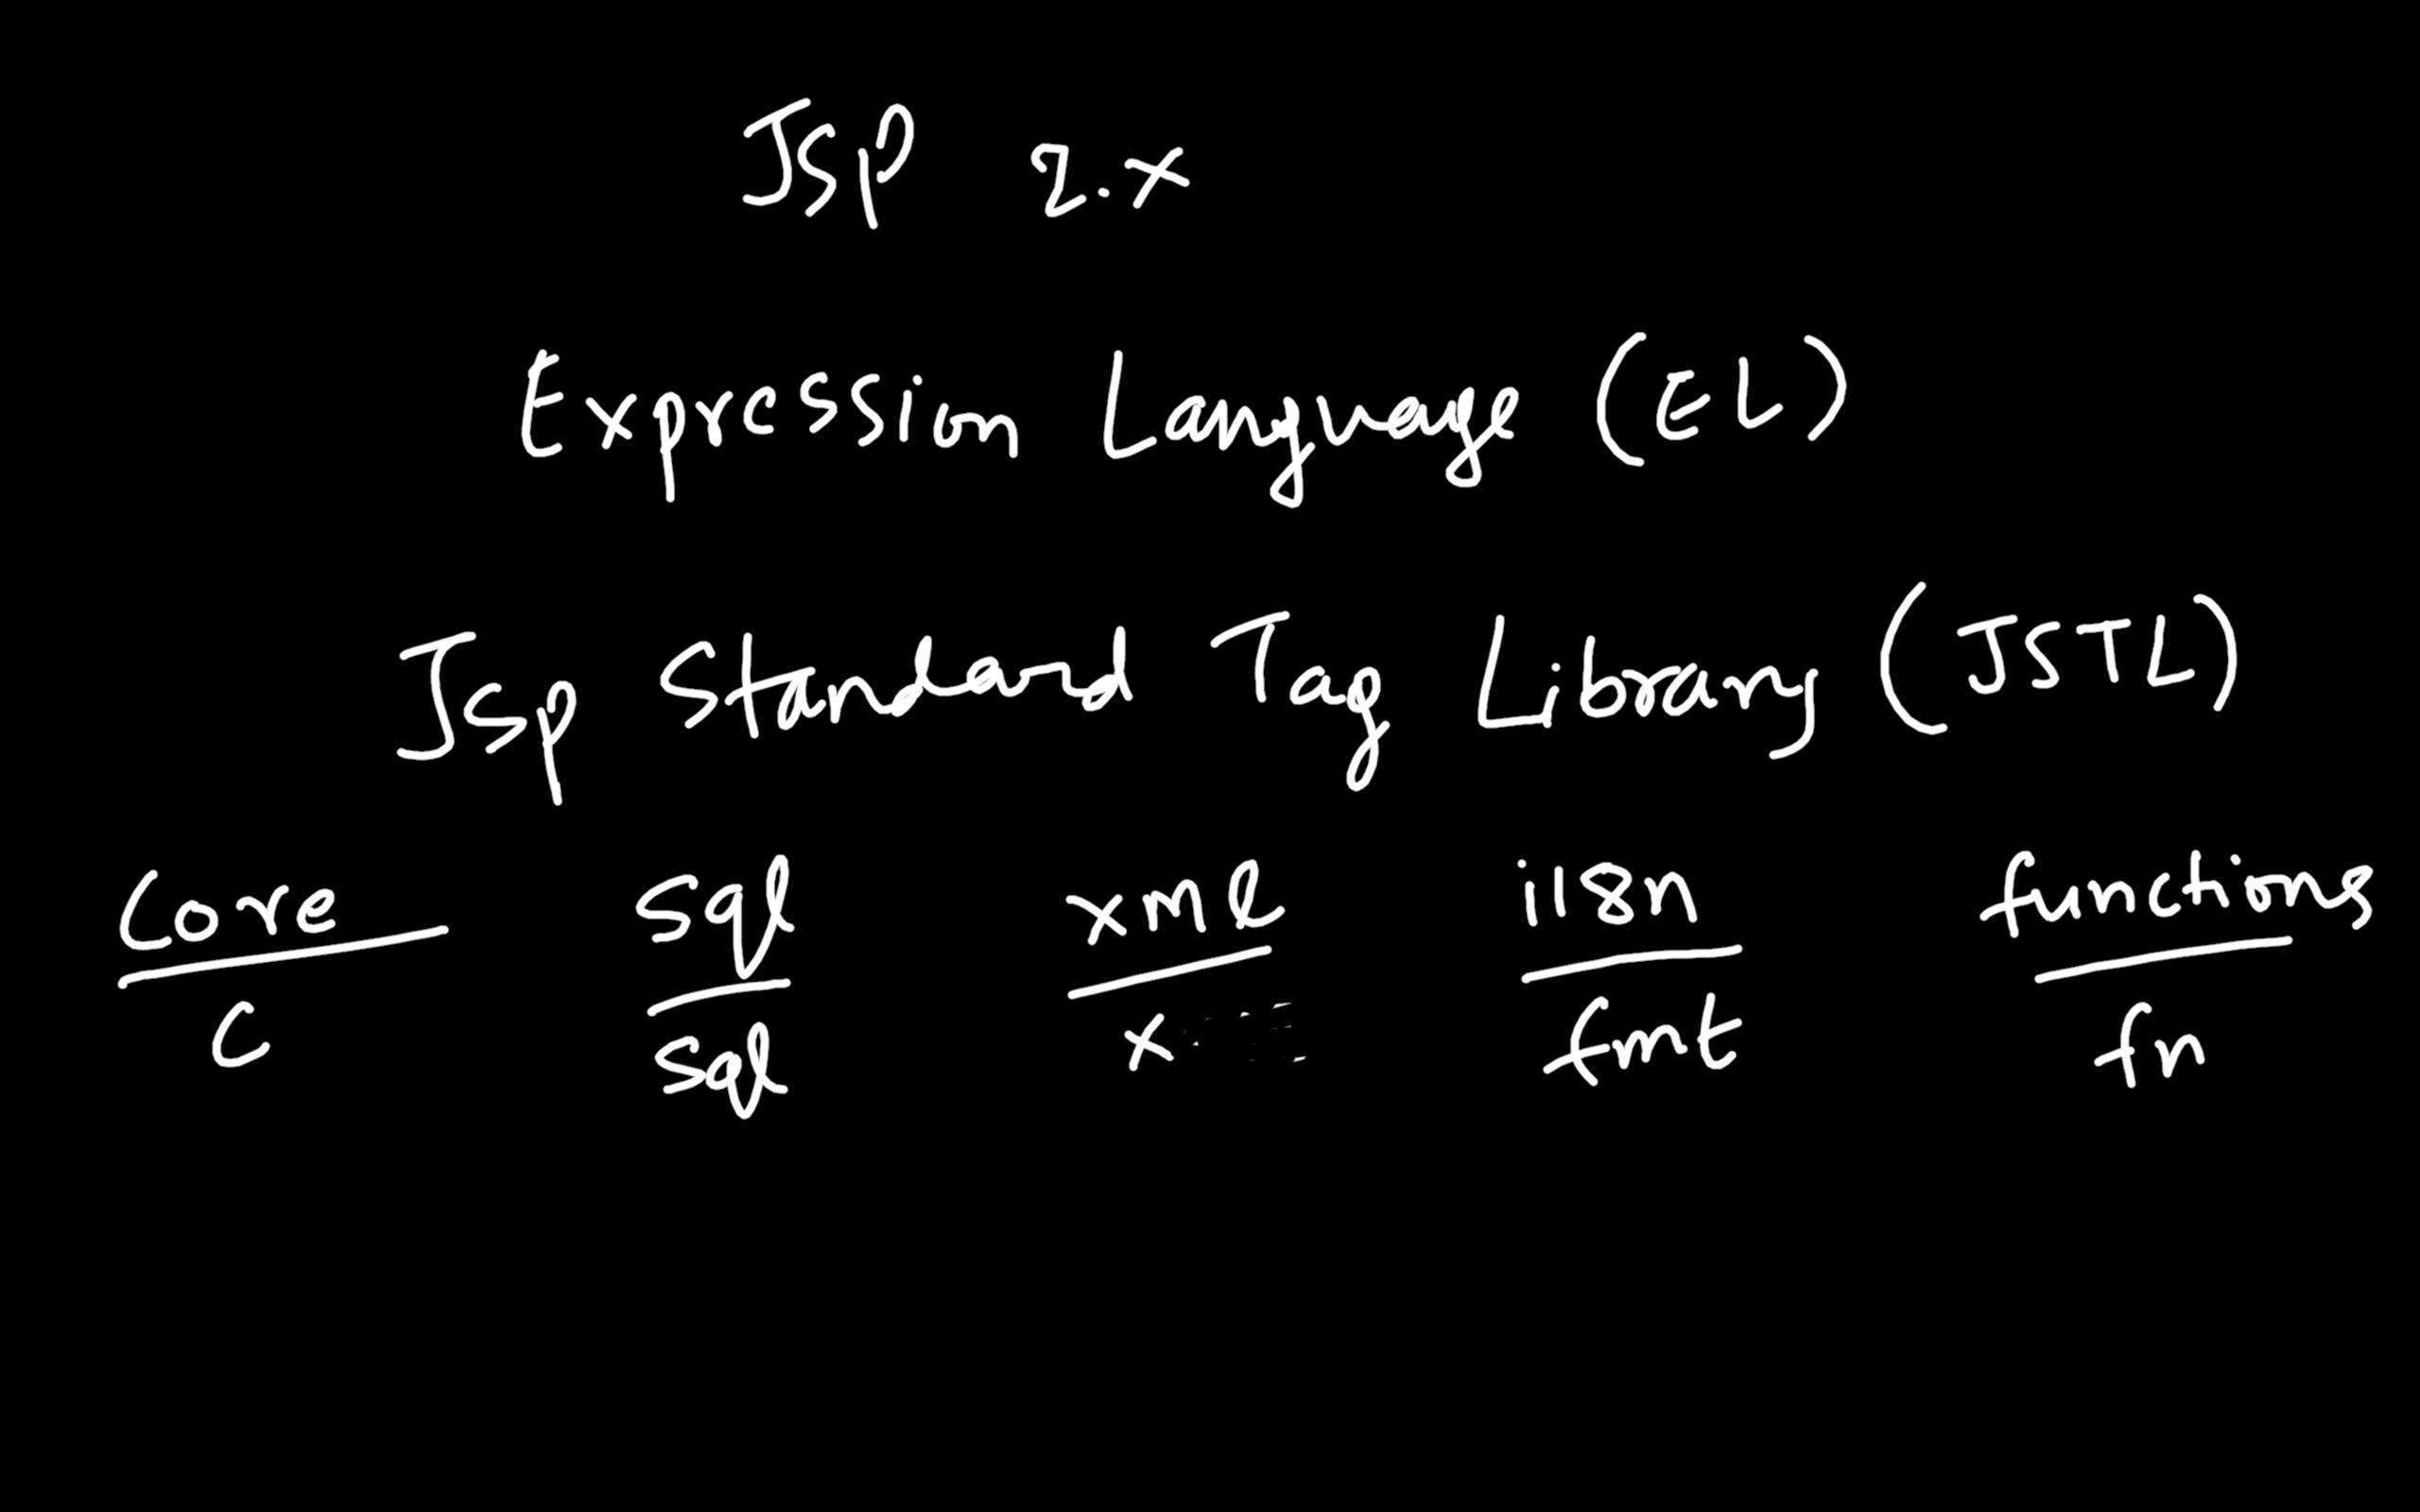 JSP 2.x
Expression Language (EL)
Jsp Standard Tag Library (JSTL)
Core sql xml i18n functions
C sql x fmt fn